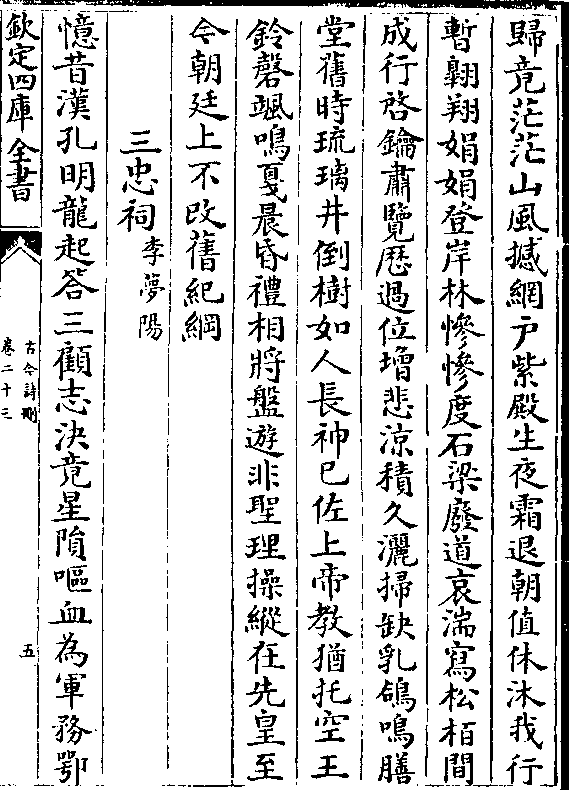 歸竟茫茫山風撼網户紫殿生夜霜退朝值休沐我行
暫翺翔娟娟登岸林慘慘度石梁廢道哀湍寫松栢間
成行啓鑰肅覽厯過位増悲凉積久灑掃缺乳鴿鳴膳
堂舊時琉璃井倒樹如人長神已佐上帝教猶托空王
鈴磬颯鳴戞晨昏禮相將盤遊非聖理操縱在先皇至
今朝廷上不改舊紀綱
三忠祠 李夢陽
憶昔漢孔明龍起答三顧志決竟星隕嘔血為軍務鄂
欽定四庫全書
古今詩刪
卷二十三
五